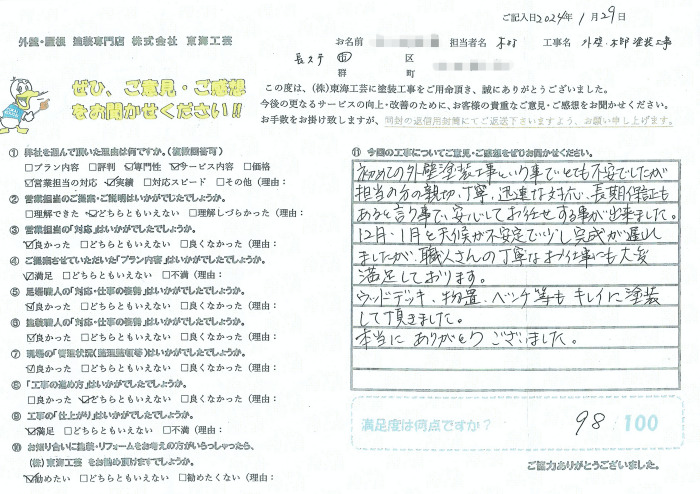 ご記入日2024年1月29日
外壁・屋根 塗装専門店 株式会社 東海工芸
お名前 担当者名 木村 工事名 外壁・木部塗装工事
長久手 市 区
郡 町
ぜひ、ご意見・ご感想
をお聞かせください!!
この度は、(株)東海工芸に塗装工事をご用命頂き、誠にありがとうございました。
今後の更なるサービスの向上・改善のために、お客様の貴重なご意見・ご感想をお聞かせください。
お手数をお掛け致しますが、同封の返信用封筒にてご返送下さいますよう、お願い申し上げます。
① 弊社を選んで頂いた理由は何ですか。(複数回答可)
□プラン内容 □評判 ☑専門性 ☑サービス内容 □価格
☑営業担当の対応 ☑実績 □対応スピード □その他(理由:
② 営業担当のご提案・ご説明はいかがでしたでしょうか。
□理解できた ☑どちらともいえない □理解しづらかった(理由:
③ 営業担当の「対応」はいかがでしたでしょうか。
☑良かった □どちらともいえない □良くなかった(理由:
④ ご提案させていただいた「プラン内容」はいかがでしたでしょうか。
☑満足 □どちらともいえない □不満(理由:
⑤ 足場職人の「対応・仕事の姿勢」はいかがでしたでしょうか。
☑良かった □どちらともいえない □良くなかった(理由:
⑥ 塗装職人の「対応・仕事の姿勢」はいかがでしたでしょうか。
☑良かった □どちらともいえない □良くなかった(理由:
⑦ 現場の「管理状況(整理整頓等)はいかがでしたでしょうか。
☑良かった □どちらともいえない □良くなかった(理由:
⑧ 「工事の進め方」はいかがでしたでしょうか。
□良かった ☑どちらともいえない □良くなかった(理由:
⑨ 工事の「仕上がり」はいかがでしたでしょうか。
☑満足 □どちらともいえない □不満(理由:
⑩ お知り合いに塗装・リフォームをお考えの方がいらっしゃったら、
(株)東海工芸 をお勧め頂けますでしょうか。
☑勧めたい □どちらともいえない □勧めたくない(理由:
⑪ 今回の工事についてご意見・ご感想をぜひお聞かせください。
初めての外壁塗装工事という事でとても不安でしたが
担当の方の親切、丁寧、迅速な対応、長期保証も
あると言う事で、安心してお任せする事が出来ました。
12月・1月と天候が不安定で少し完成が遅れ
ましたが、職人さんの丁寧なお仕事にも大変
満足しております。
ウッドデッキ、物置、ベンチ等もキレイに塗装
して頂きました。
本当に ありがとうございました。
満足度は何点ですか? 98/100
ご協力ありがとうございました。